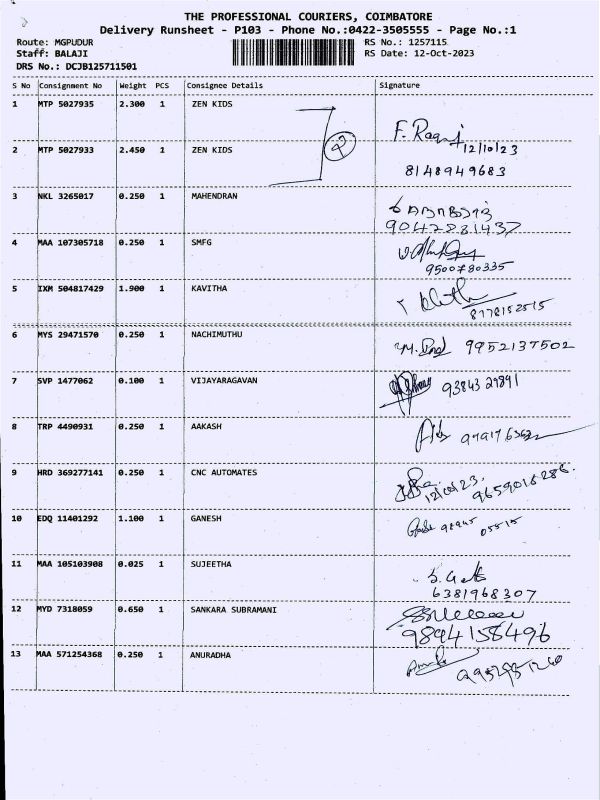 THE PROFESSIONAL COURIERS, COIMBATORE
Delivery Runsheet - P103 - Phone No.:0422-3505555 - Page No.:1
Route: MGPUDUR RS No.: 1257115
Staff: BALAJI RS Date: 12-Oct-2023
DRS No.: DCJB125711501
S No Consignment No Weight PCS Consignee Details Signature
1 MTP 5027935 2.300 1 ZEN KIDS
2
12/10/23
2 MTP 5027933 2.450 1 ZEN KIDS
8148949683
3 NKL 3265017 0.250 1 MAHENDRAN
9042281437
4 MAA 107305718 0.250 1 SMFG
9500780335
5 IXM 504817429 1.900 1 KAVITHA
8778152515
6 MYS 29471570 0.250 1 NACHIMUTHU
9952137502
7 SVP 1477062 0.100 1 VIJAYARAGAVAN
9384329891
8 TRP 4490931 0.250 1 AAKASH
9 HRD 369277141 0.250 1 CNC AUTOMATES
12/10/23, 9659016286.
10 EDQ 11401292 1.100 1 GANESH
11 MAA 105103908 0.025 1 SUJEETHA
6381968307
12 MYD 7318059 0.650 1 SANKARA SUBRAMANI
9894158496
13 MAA 571254368 0.250 1 ANURADHA